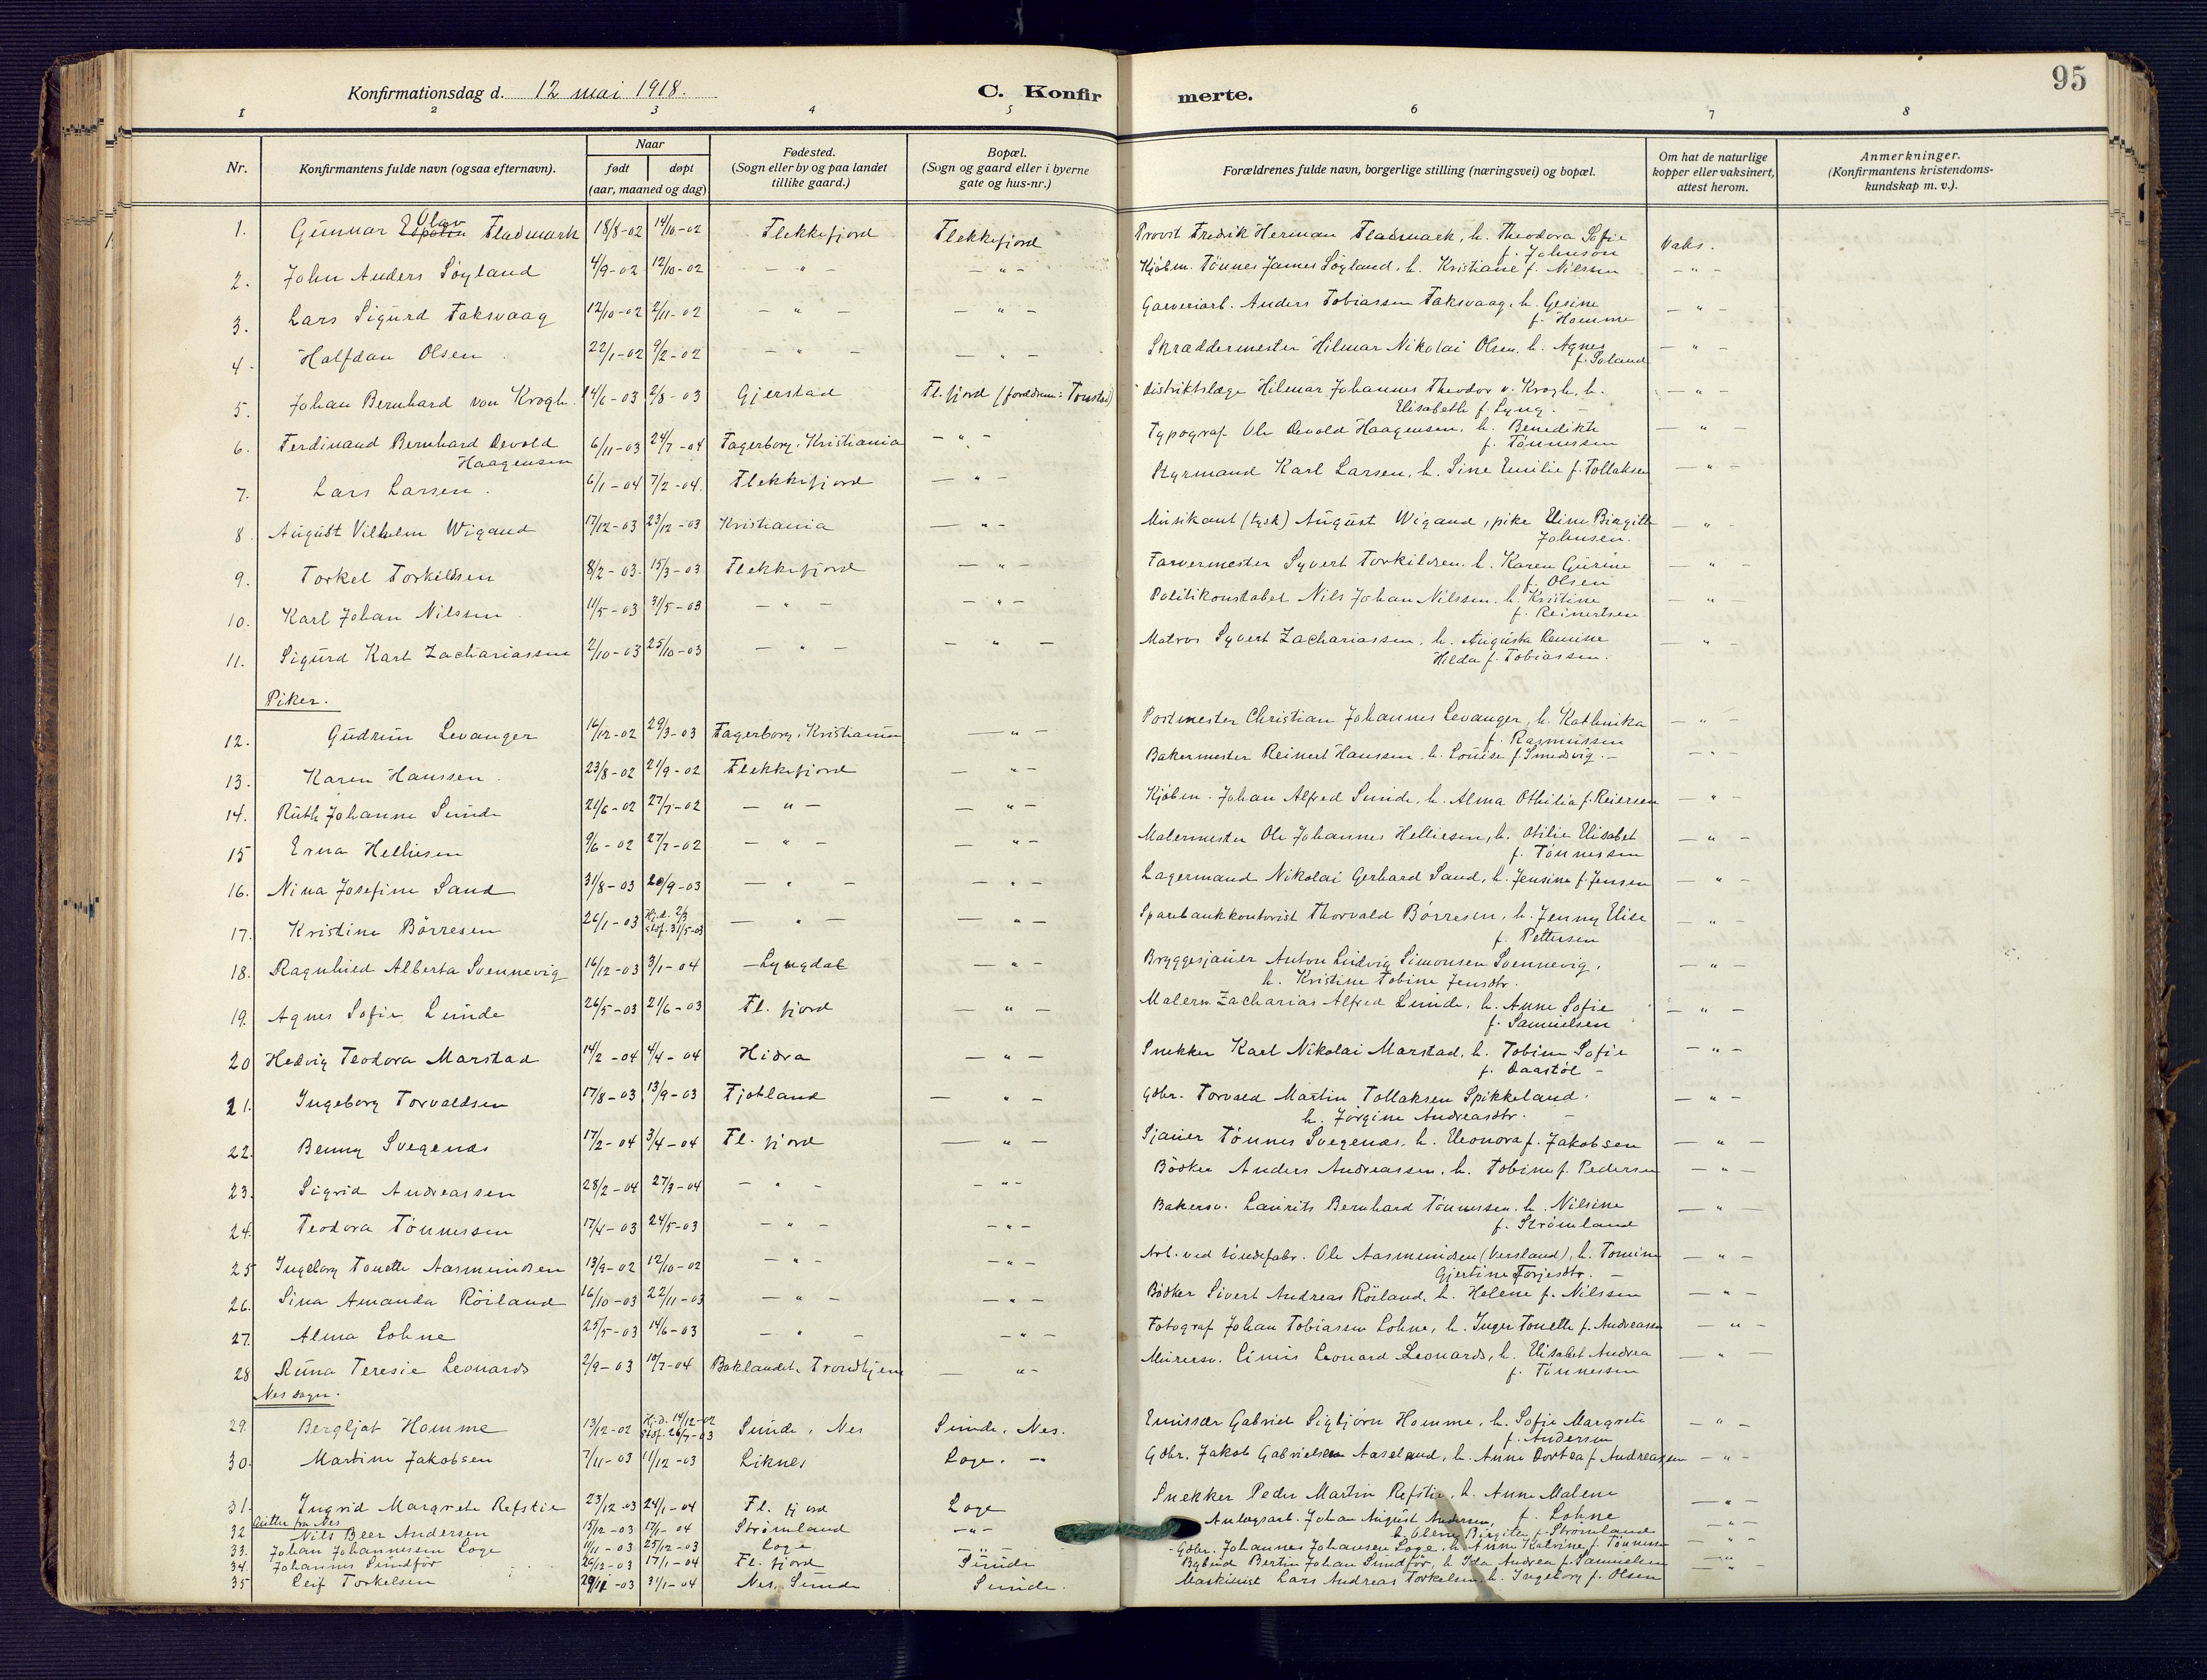 95
Konfirmationsdag d. 12 mai 1918.
C. Konfirmerte.
1 2 3 4 5 6 7 8
Nr.
Konfirmantens fulde navn (ogsaa efternavn).
Naar
født døpt
(aar, maaned og dag)
Fødested.
(Sogn eller by og paa landet
tillike gaard.)
Bopæl.
(Sogn og gaard eller i byerne
gate og hus-nr.)
Forældrenes fulde navn, borgerlige stilling (næringsvei) og bopæl.
Om hat de naturlige
kopper eller vaksinert,
attest herom.
Anmerkninger.
(Konfirmantens kristendoms-
kundskap m. v.).
1. Gunnar Espolin Olav Fladmark 18/8-02 14/10-02 Flekkefjord Flekkefjord Provst Fredrik Herman Fladmark, h. Theodora Sofie vaks.
f. Johnson
2. John Anders Søyland 4/9-02 12/10-02 — " — — " — Kjøbm. Tönnes James Søyland, h. Kristiane f. Nilsen — " —
3. Lars Sigurd Faksvaag 12/10-02 2/11-02 — " — — " — Garveriarb. Anders Tobiassen Faksvaag, h. Gesine — " —
f. Homme
4. Halfdan Olsen 22/1-02 9/2-02 — " — — " — Skræddermester Hilmar Nikolai Olsen, h. Agnes — " —
f. Soland
5. Johan Bernhard von Krogh. 14/6-03 2/8-03 Gjerstad Fl.fjord (forældrene: Tonstad) Distriktslæge Hilmar Johannes Theodor v. Krogh, h. — " —
Elisabeth f. Lyng. —
6. Ferdinand Bernhard Devold 6/11-03 24/7-04 Fagerborg, Kristiania — " — Typograf Ole Devold Haagensen, h. Benedikte — " —
Haagensen f. Tönnessen
7. Lars Larsen. 6/1-04 7/2-04. Flekkefjord — " — Styrmand Karl Larsen, h. Sine Emilie f. Tollaksen — " —
8. August Vilhelm Wigand 17/12-03 23/12-03 Kristiania — " — Musikant (tysk) August Wigand, pike Eline Birgitte — " —
Johnsen.
9. Torkel Torkildsen 8/2-03. 15/3-03 Flekkefjord — " — Farvermester Syvert Torkildsen. h. Karen Gurine — " —
f. Olsen
10. Karl Johan Nilssen 11/5-03 31/5-03 — " — — " — Politikonstabel Nils Johan Nilssen. h. Kristine — " —
f. Reinertsen
11. Sigurd Karl Zachariassen 2/10-03 25/10-03 — " — — " — Matros Syvert Zachariassen, h. Augusta Remine — " —
Hilda f. Tobiassen.
Piker.
12. Gudrun Levanger 16/12-02 29/3-03 Fagerborg, Kristiania — " — Postmester Christian Johannes Levanger, h. Kathinka — " —
f. Rasmussen
13. Karen Hanssen. 23/8-02 21/9-02 Flekkefjord — " — Bakermester Reinert Hanssen. h. Louise f. Smedsvig. — — " —
14. Ruth Johanne Sunde 21/6-02 27/7-02 — " — — " — Kjøbm. Johan Alfred Sunde, h. Alma Othilia f. Reiersen — " —
15 Erna Helliesen 9/6-02 27/7-02 — " — — " — Malermester Ole Johannes Helliesen, h. Otilie Elisabet — " —
f. Tönnessen
16. Nina Josefine Sand 31/8-03 20/9-03 — " — — " — Lagermand Nikolai Gerhard Sand, h. Jensine f. Jensen — " —
17. Kristine Börresen 26/1-03 Hj.d. 2/3 staf. 31/5-03 — " — — " — Sparebankkontorist Thorvald Börresen, h. Jenny Elise — " —
f. Pettersen
18. Ragnhild Alberta Svennevig 16/12-03 3/1-04 Lyngdal — " — Bryggesjauer Anton Ludvig Simonsen Svennevig, — " —
h. Kristine Tobine Jensdtr.
19. Agnes Sofie Lunde 26/5-03 21/6-03 Fl. fjord — " — Malerm. Zacharias Alfred Lunde, h. Anne Sofie — " —
f. Samuelsen
20 Hedvig Teodora Marstad 14/2-04 4/4-04 Hidra — " — Snekker Karl Nikolai Marstad, h. Tobine Sofie — " —
f. Daastöl —
21. Ingeborg Torvaldsen 17/8-03 13/9-03 Fjotland — " — Gdbr. Torvald Martin Tollaksen Spikkeland. — " —
h. Jörgine Andreasdtr. —
22. Benny Svegenæs 17/2-04 3/4-04 Fl. fjord — " — Sjauer Tönnes Svegenæs, h. Eleonora f. Jakobsen — " —
23. Sigrid Andreassen 28/2-04 27/3-04 — " — — " — Bödker Anders Andreassen, h. Tobine f. Pedersen — " —
24. Teodora Tönnessen 17/4-03 24/5-03 — " — — " — Bakersv. Laurits Bernhard Tönnessen. h. Nilsine — " —
f. Strömland
25 Ingeborg Tonette Aasmundsen 13/9-02 12/10-02 — " — — " — Arb. ved töndefabr. Ole Aasmundsen (Versland), h. Tomine — " —
Gjertine Torjesdtr. —
26. Sina Amanda Röiland 16/10-03 22/11-03 — " — — " — Bödker Sivert Andreas Röiland, h. Helene f. Nilssen — " —
27. Alma Lohne 25/5-03 14/6-03 — " — — " — Fotograf Johan Tobiassen Lohne, h. Inger Tonette f. Andreassen — " —
28 Runa Teresie Leonards 2/9-03 10/7-04 Baklandet, Trondhjem — " — Murersv. Linus Leonard Leonards, h. Elisabet Andrea — " —
f. Tönnessen
Nes sogn.
29. Bergljot Homme 13/12-02 Hj.d. 14/12-02 staf. 26/7-03 Sunde, Nes Sunde, Nes. Emissær Gabriel Sigbjörn Homme, h. Sofie Margrete — " —
f. Andersen
30. Martine Jakobsen 7/11-03 11/12-03 Liknes Loge. — " Gdbr. Jakob Gabrielsen Aaseland, h. Anne Dortea f. Andreassen — " —
31. Ingrid Margrete Refstie 23/12-03 24/1-04 Fl. fjord Loge Snekker Peder Martin Refstie, h. Anne Malene — " —
f. Lohne
Gutter fra Nes
32 Nils Beer Andersen 15/12-03 17/1-04 Strömland — " — Anlægsarb. Johan August Andersen, — " —
h. Olene Birgitte f. Strömland
33. Johan Johannessen Loge 11/11-03 25/12-03 Loge — " — Gdbr. Johannes Johansen Loge, h. Anne Katrine f. Tönnessen — " —
34. Johannes Sundför 26/12-03 17/1-04 Fl. fjord Sunde Bybud Bertin Johan Sundför, h. Ida Andrea f. Samuelsen — " —
35 Leif Torkelsen 29/11-03 31/1-04 Nes, Sunde Sunde. Maskinist Lars Andreas Torkelsen, h. Ingeborg f. Olsen — " —